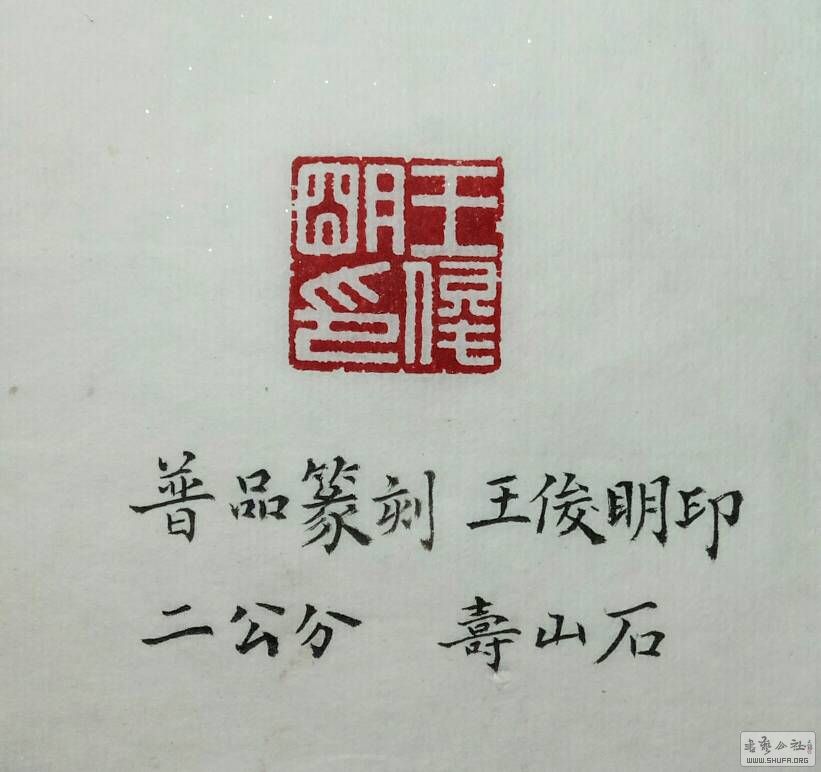 王俊明印
普品篆刻 王俊明印
二公分 壽山石
书艺公社
WWW.SHUFA.ORG